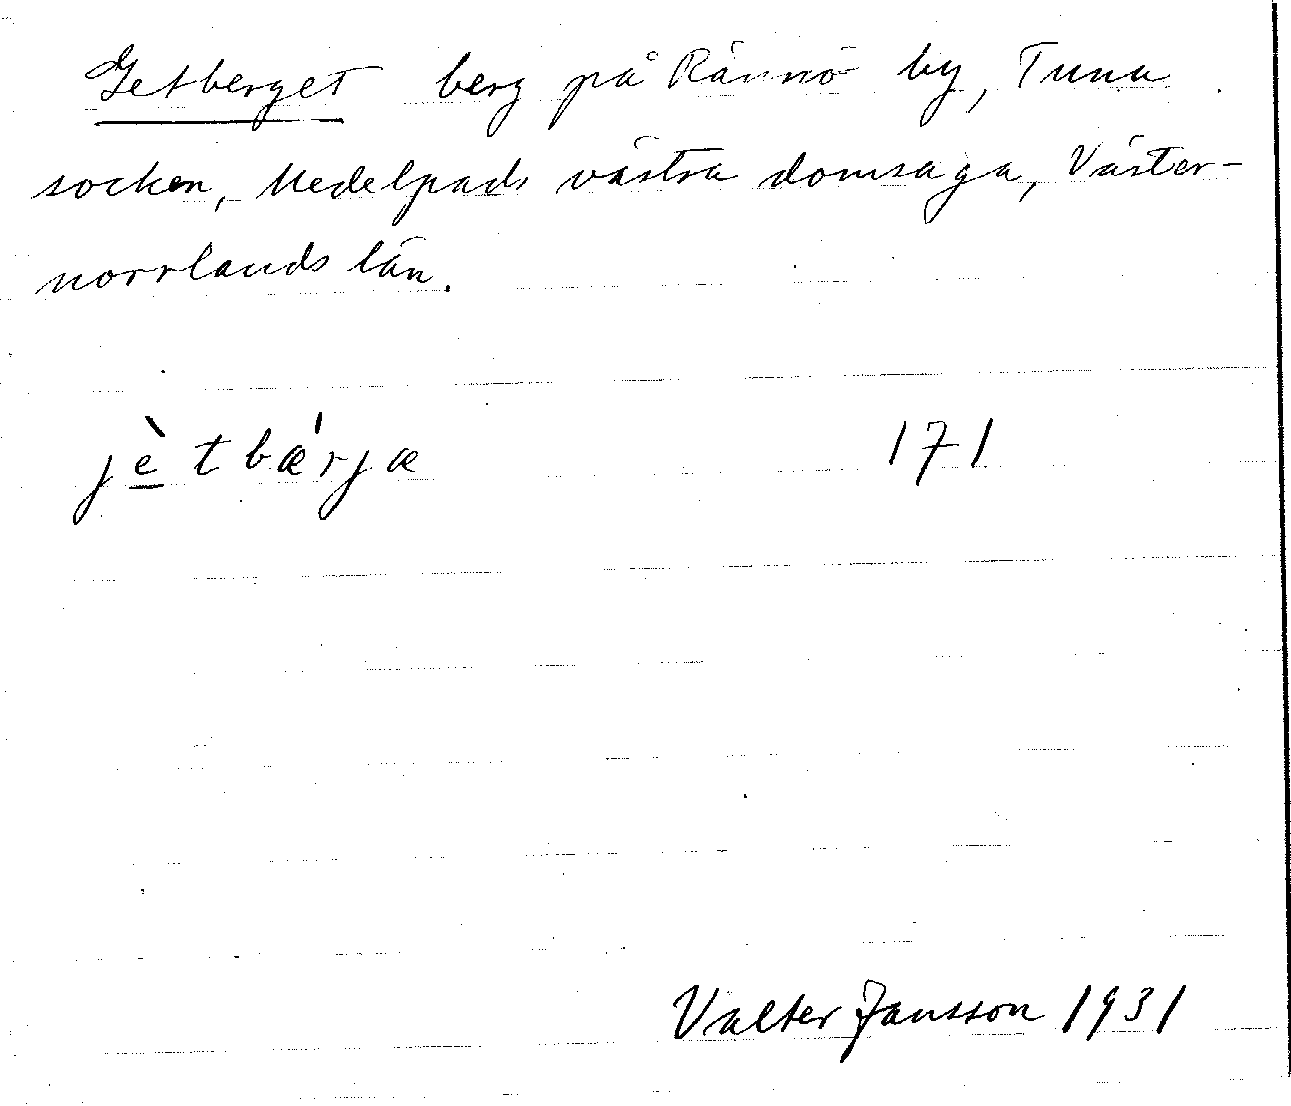 Getberget berg på Rännö by, Tuna
socken, Medelpads västra domsaga, Väster-
norrlands län.
jè̲tbærja 171
Valter Jansson 1931